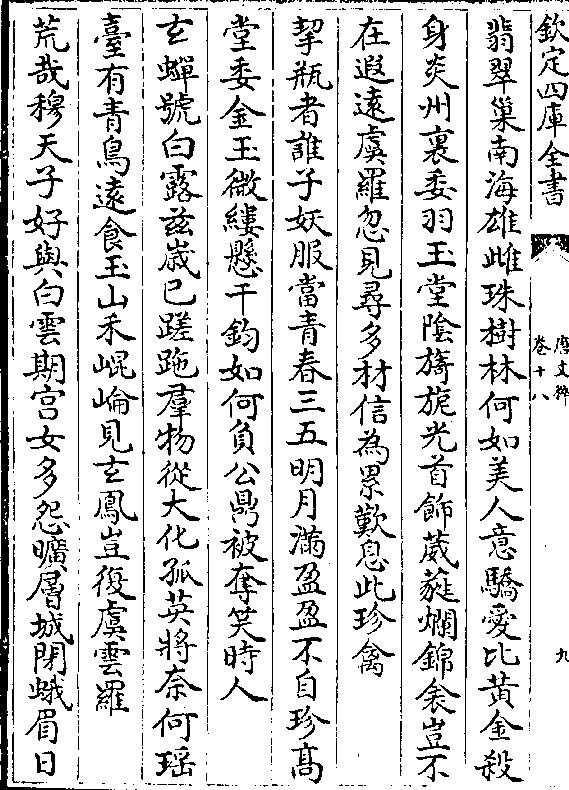 欽定四庫全書
唐文粹
卷十八
九
翡翠巢南海雄雌珠樹林何如美人意驕愛比黃金殺
身炎州裏委羽玉堂陰旖旎光首飾葳蕤爛錦衾豈不
在遐遠虞羅忽見尋多材信為累歎息此珍禽
挈瓶者誰子妖服當青春三五明月滿盈盈不自珍髙
堂委金玉微縷懸千鈞如何負公鼎被奪笑時人
玄蟬號白露兹歲已蹉跎羣物從大化孤英將奈何瑶
臺有青鳥逺食玉山禾崐崘見玄鳳豈復虞雲羅
荒哉穆天子好與白雲期宫女多怨曠層城閉蛾眉日